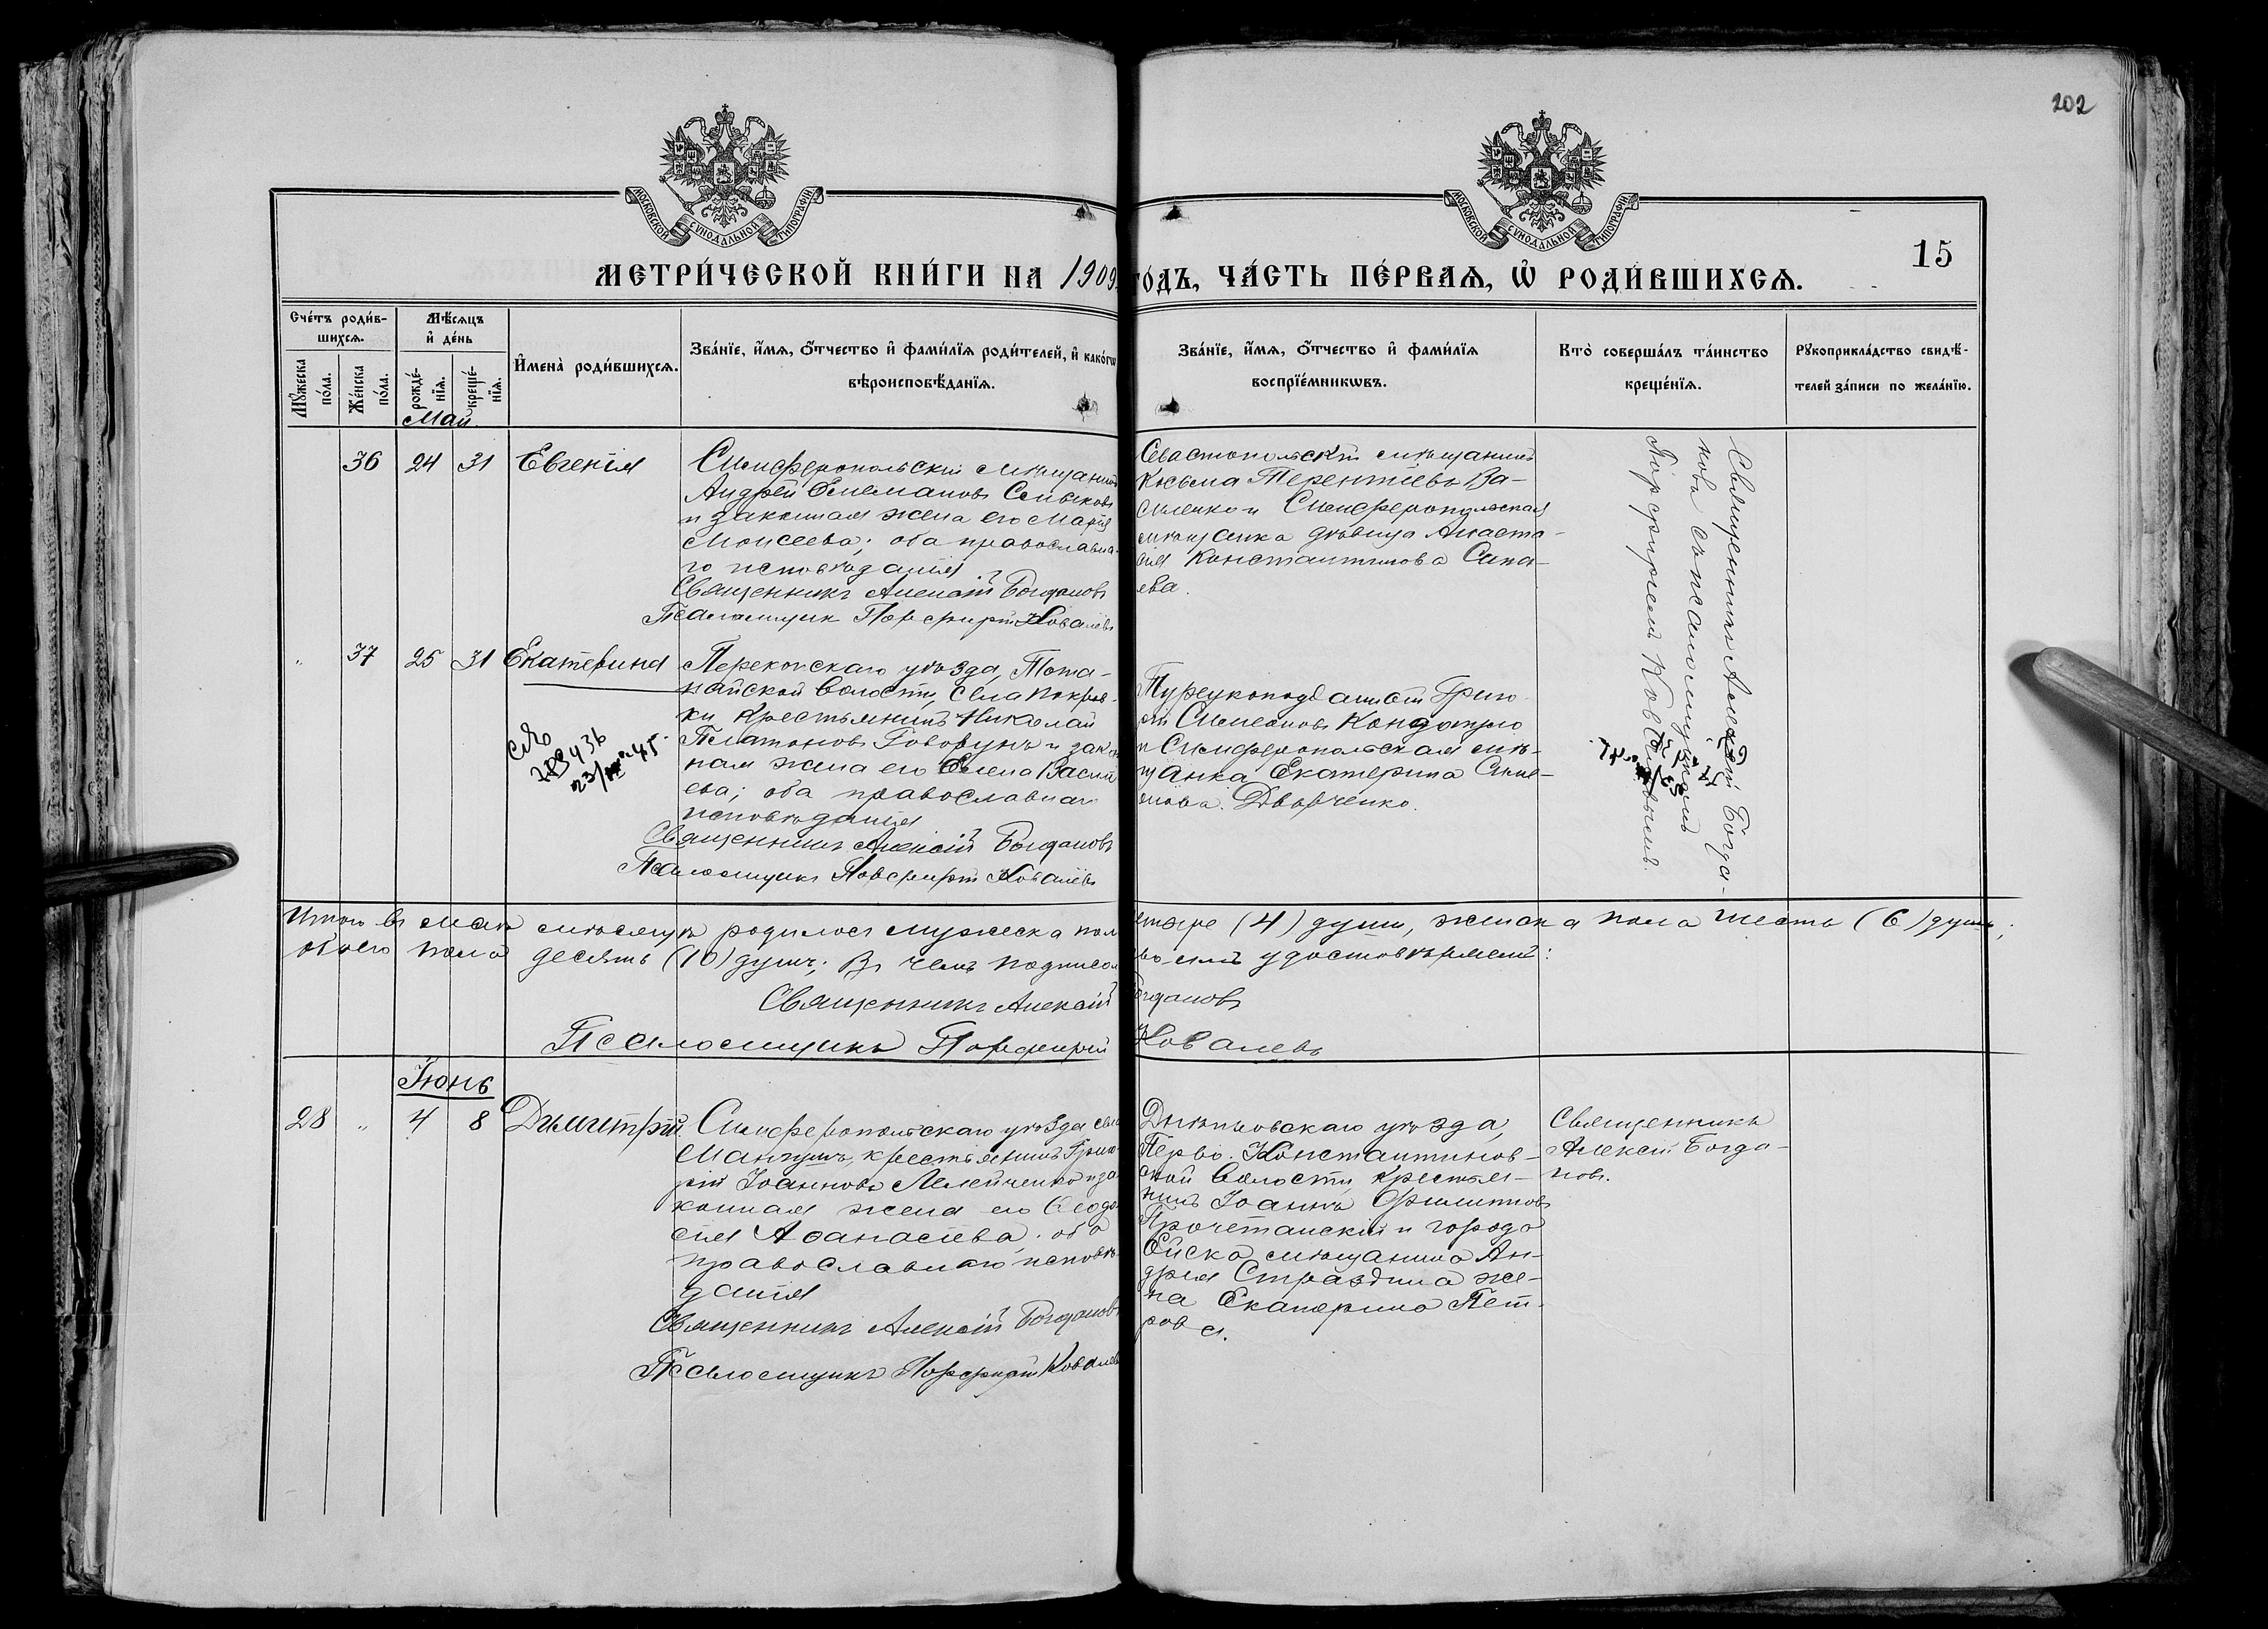 202
МОСКОВСКОЙ СѴНОДАЛЬНОЙ ТИПОГРАФІИ
МОСКОВСКОЙ СѴНОДАЛЬНОЙ ТИПОГРАФІИ
15
МЕТРИ́ЧЕСКОЙ КНИ́ГИ НА 1909
ГО́ДЪ, ЧА́СТЬ ПЕ́РВАѦ, Ѽ РОДИ́ВШИХСѦ.
Сче́тъ роди́в-
шихсѧ.
Мꙋ́жеска по́ла.
Же́нска по́ла.
Мѣ́сѧцъ
и҆ де́нь
рожде́-
нїѧ.
креще́-
нїѧ.
И҆мена̀ роди́вшихсѧ.
Зва́нїе, и҆́мѧ, ѻ҆́тчество и҆ фами́лїѧ роди́телей, и҆ како́гѡ
вѣроисповѣ́данїѧ.
Зва́нїе, и҆́мѧ, ѻ҆́тчество и҆ фами́лїѧ
воспрїе́мникѡвъ.
Кто̀ соверша́лъ та́инство
креще́нїѧ.
Рꙋкоприкла́дство свидѣ́-
телей за́писи по жела́нїю.
Май
36 24 31 Евгенія
Симферопольскій мѣщанинъ
Андрей
и законная жена его Марія
Моисеева; оба православна-
го исповѣданія
Священникъ Алексій Богдановъ
Псаломщик Порфирій Ковалевъ
Севастопольскій мѣщанинъ
Косьма Терентіевъ Ва-
силенко и Симферопольская
мѣщанка дѣвица Анаста-
сія Константинова Сина-
ева.
Священникъ Алексій Богда-
новъ съ псаломщикомъ
Порфиріемъ Ковалевымъ.
37 25 31 Екатерина
Перекопскаго уѣзда, Тота-
найской волости, села Покров-
ки крестьянинъ Николай
Платоновъ Говорунъ и закон
ная жена его Елена Васил
ева; оба православнаго
исповѣданія
Священникъ Алексій Богдановъ
Псаломщикъ Порфирій Ковалевъ
Турецкоподданный Григо-
рій Симеоновъ
и Симферопольская мѣ-
щанка Екатерина Симе-
онова Дворченко.
Итого въ маѣ мѣсяцѣ родилось мужеска пол
етыре (4) души, женска пола шесть (6) душъ;
обоего пола десять (10) душъ; Въ чемъ подписом
во симъ удостовѣряемъ:
Священникъ Алексій
огдановъ
Псаломщикъ Порфирій
Ковалевъ
Іюнь
28 " 4 8 Димитрій
Симферопольскаго уѣзда села
Мангушъ, крестьянинъ Григо
рій Іоанновъ и за
конная жена его Ѳеодо
сія Аѳанасіева; оба
православнаго исповѣ
данія
Священникъ Алексій Богдановъ
Псаломщикъ Порфирій Ковалевъ
Днѣпровскаго уѣзда,
Перво-Константинов-
ской волости, крестья-
нинъ Іоаннъ Филипповъ
и города
Ейска мѣщанина Ан-
дрея Страздина же-
на Екатерина Пет-
рова.
Священникъ
Алексій Богда-
новъ.